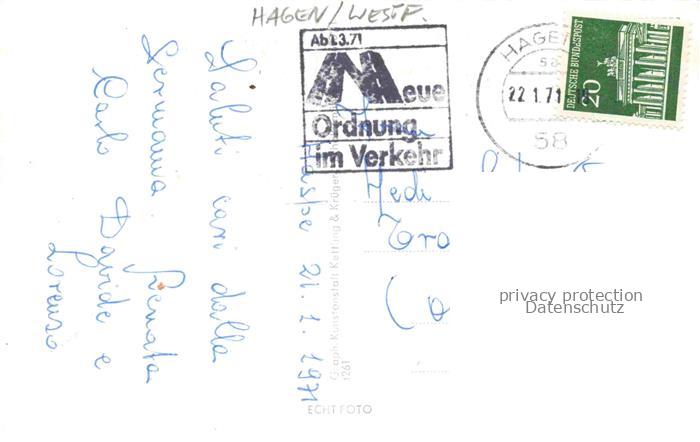 HAGEN/WESTF.
Ab 1.3.71
Neue
Ordnung
im Verkehr
HAGEN
58
22.1.71
58
DEUTSCHE BUNDESPOST
20
Haspe 21.1.1971
Saluti cari dalla
Germania. Renata
Carlo Davide e
Lorenzo
Graph. Kunstanstalt Kettling & Krüger
1261
ECHT FOTO
privacy protection
Datenschutz